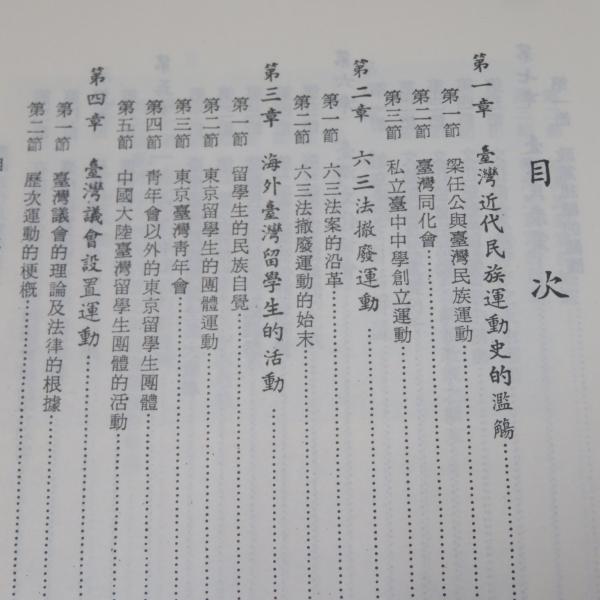 目次
第一章 臺灣近代民族運動史的濫觴
第一節 梁任公與臺灣民族運動
第二節 臺灣同化會
第三節 私立臺中中學創立運動
第二章 六三法撤廢運動
第一節 六三法案的沿革
第二節 六三法撤廢運動的始末
第三章 海外臺灣留學生的活動
第一節 留學生的民族自覺
第二節 東京留學生的團體運動
第三節 東京臺灣青年會
第四節 青年會以外的東京留學生團體
第五節 中國大陸臺灣留學生團體的活動
第四章 臺灣議會設置運動
第一節 臺灣議會的理論及法律的根據
第二節 歷次運動的梗概